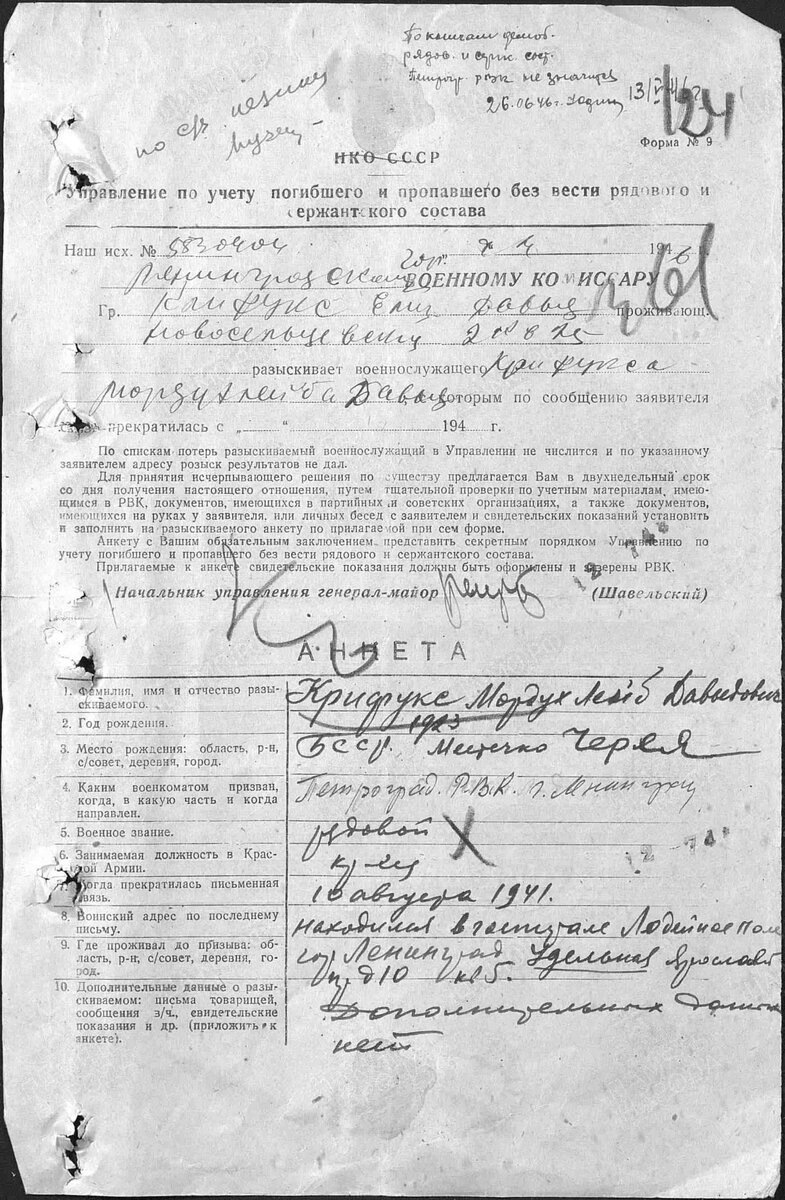 По книгам демоб.
рядов. и серж. сост.
Петрогр. РВК не значится
26.06.46 г.
13/
124
по
Форма № 9
НКО СССР
Управление по учету погибшего и пропавшего без вести рядового и
сержантского состава
Наш исх. № 5830404 194 6 г.
Ленинградскому Гор. ВОЕННОМУ КОМИССАРУ
Гр. Крифукс Елиз Давыд проживающ.
разыскивает военнослужащего Крифукса
Мордухлейба Давыд с которым по сообщению заявителя
связь прекратилась с „ “ 194 г.
По спискам потерь разыскиваемый военнослужащий в Управлении не числится и по указанному
заявителем адресу розыск результатов не дал.
Для принятия исчерпывающего решения по существу предлагается Вам в двухнедельный срок
со дня получения настоящего отношения, путем тщательной проверки по учетным материалам, имею-
щимся в РВК, документов, имеющихся в партийных и советских организациях, а также документов,
имеющихся на руках у заявителя, или личных бесед с заявителем и свидетельских показаний установить
и заполнить на разыскиваемого анкету по прилагаемой при сем форме.
Анкету с Вашим обязательным заключением представить секретным порядком Управлению по
учету погибшего и пропавшего без вести рядового и сержантского состава.
Прилагаемые к анкете свидетельские показания должны быть оформлены и заверены РВК.
Начальник управления генерал-майор (Шавельский)
АНКЕТА
1. Фамилия, имя и отчество разы-
скиваемого.
Крифукс Мордух Лейб Давыдович
2. Год рождения.
1923
3. Место рождения: область, р-н,
с/совет, деревня, город.
БССР. Местечко Черея
4. Каким военкоматом призван,
когда, в какую часть и когда
направлен.
Петроград. Р.В.К. г. Ленинград
5. Военное звание.
рядовой
6. Занимаемая должность в Крас-
ной Армии.
кр-ец
7. Когда прекратилась письменная
связь.
10 августа 1941.
8. Воинский адрес по последнему
письму.
находился в госпитале Лодейное поле
9. Где проживал до призыва: об-
ласть, р-н, с/совет, деревня, го-
род.
гор Ленинград Удельная Ярославск
пр д 10 кв 5.
10. Дополнительные данные о ра-
зыскиваемом: письма товарищей,
сообщения з/ч., свидетельские
показания и др. (приложить к
анкете).
Дополнительных данных
нет